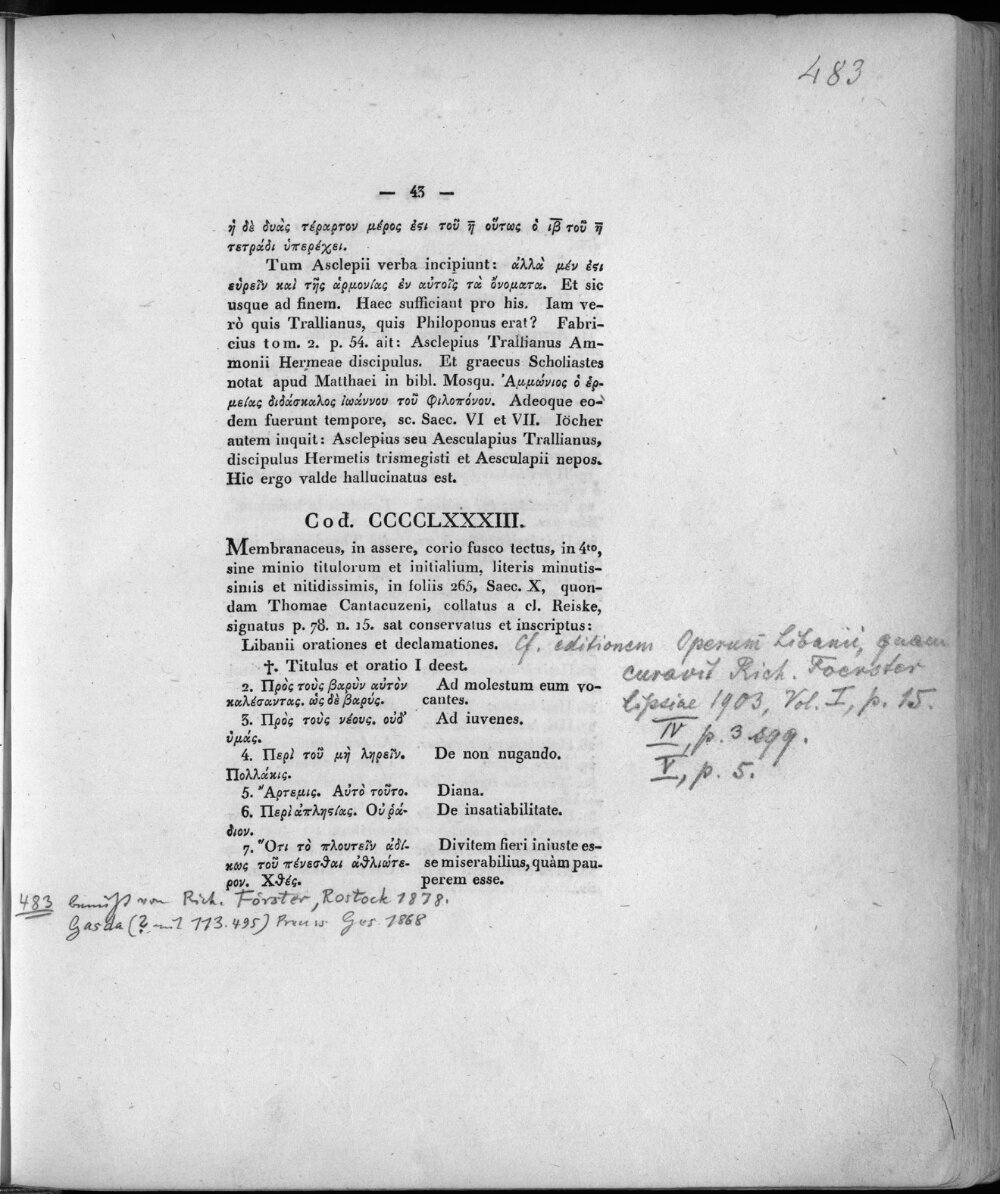 483
— 43 —
ἡ δὲ δυὰς τέραρτον μέρος ἐϛι τοῦ η̅ οὕτως ὁ ιβ̅ τοῦ η̅
τετράδι ὑπερέχει.
Tum Asclepii verba incipiunt: ἀλλὰ μέν ἐϛι
εὑρεῖν καὶ τῆς ἁρμονίας ἐν αὐτοῖς τὰ ὀνοματα. Et sic
usque ad finem. Haec sufficiant pro his. Iam ve-
rò quis Trallianus, quis Philoponus erat? Fabri-
cius tom. 2. p. 54. ait: Asclepius Trallianus Am-
monii Hermeae discipulus. Et graecus Scholiastes
notat apud Matthaei in bibl. Mosqu. Ἀμμώνιος ὁ ἑρ-
μείας διδάσκαλος ἰωάννου τοῦ φιλοπόνου. Adeoque eo-
dem fuerunt tempore, sc. Saec. VI et VII. Iöcher
autem inquit: Asclepius seu Aesculapius Trallianus,
discipulus Hermetis trismegisti et Aesculapii nepos.
Hic ergo valde hallucinatus est.
Cod. CCCCLXXXIII.
Membranaceus, in assere, corio fusco tectus, in 4to,
sine minio titulorum et initialium, literis minutis-
simis et nitidissimis, in foliis 265, Saec. X, quon-
dam Thomae Cantacuzeni, collatus a cl. Reiske,
signatus p. 78. n. 15. sat conservatus et inscriptus:
Libanii orationes et declamationes. Cf. editionem Operum Libanii, quam
curavit Rich. Foerster
Lipsiae 1903, Vol. I, p. 15.
IV, p. 3 sqq.
V, p. 5.
†. Titulus et oratio I deest.
2. Πρὸς τοὺς βαρὺν αὐτὸν Ad molestum eum vo-
καλέσαντας. ὡς δὲ βαρύς. cantes.
3. Πρὸς τοὺς νέους. οὐδ᾽ Ad iuvenes.
ὑμάς.
4. Περὶ τοῦ μὴ ληρεῖν. De non nugando.
Πολλάκις.
5. Ἄρτεμις. Αὐτὸ τοῦτο. Diana.
6. Περὶ ἀπληϛίας. Οὐ ῥά- De insatiabilitate.
διον.
7. Ὅτι τὸ πλουτεῖν ἀδί- Divitem fieri iniuste es-
κως τοῦ πένεσθαι ἀθλιώτε- se miserabilius, quàm pau-
ρον. Χθές. perem esse.
483 benutzt von Rich. Förster, Rostock 1878.
Gasda (? mit 113.495) 1868